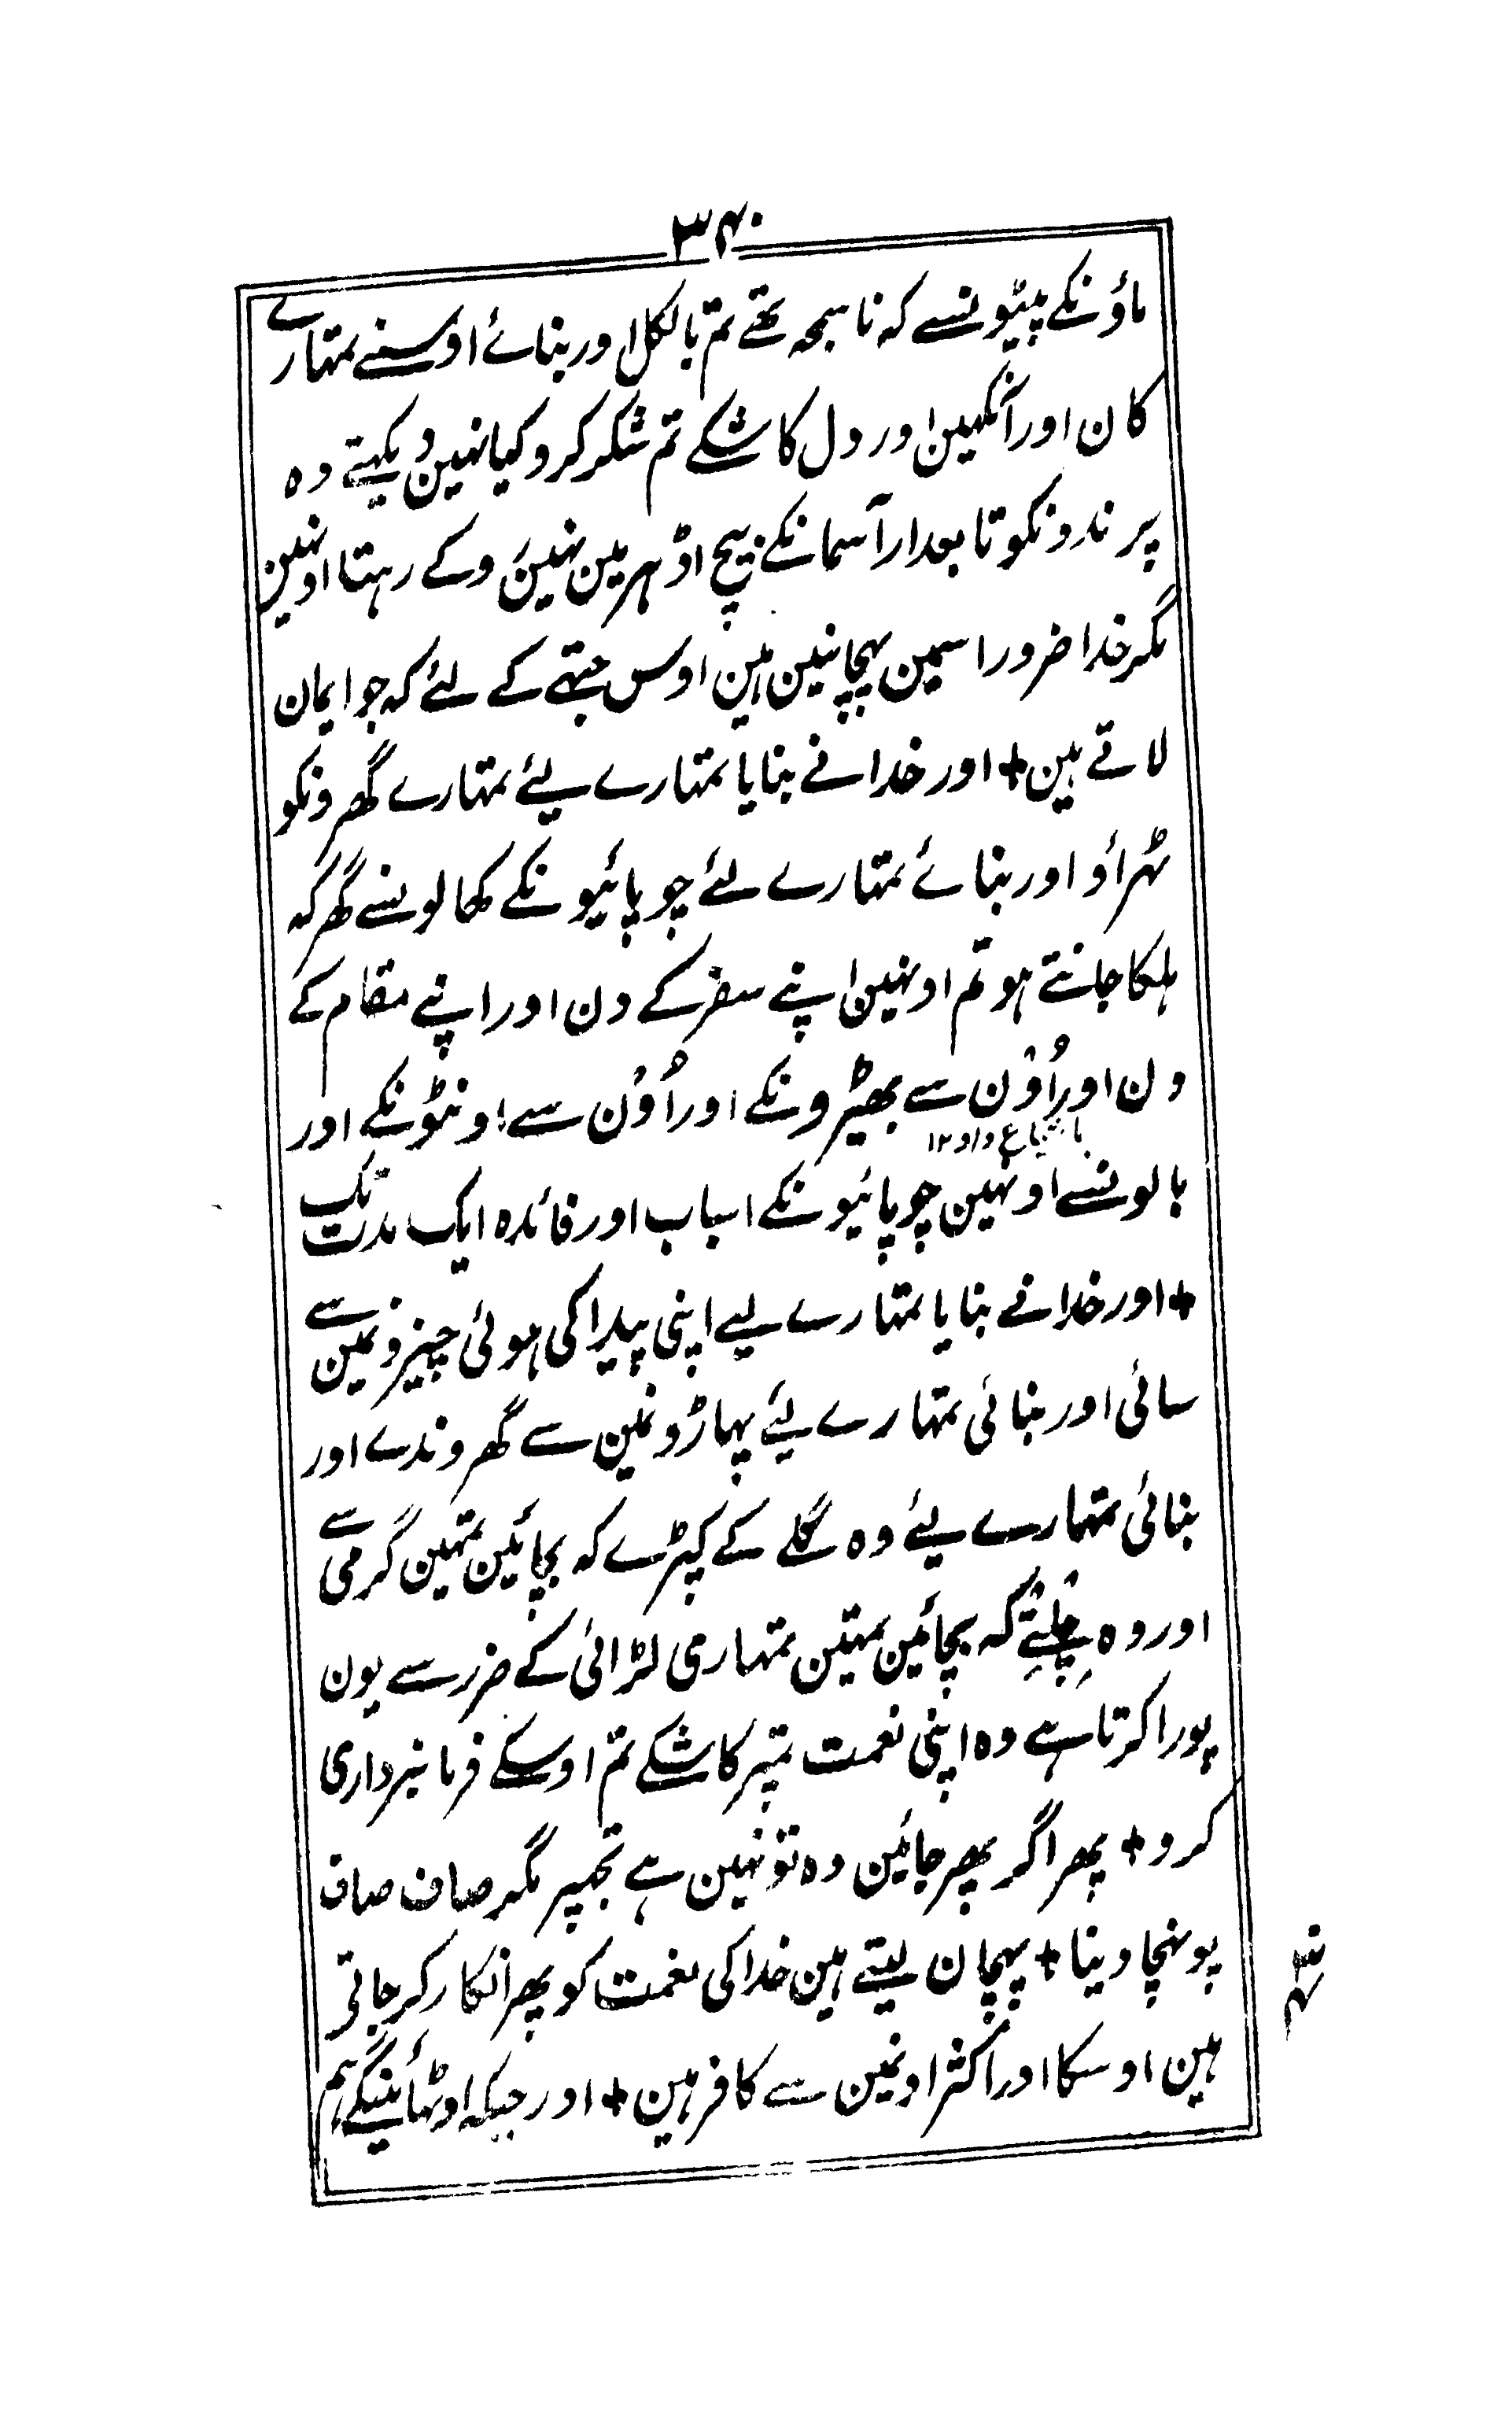 ۳۴۰
ماؤنکے پیٹونسے کہ ناسمجہ تھے تم بالکل اور بنائے اوسنے تمہارے
کان اور آنکہین اور دل کاشکے تم شکر کرو کیا نہین دیکہتے وہ
پرندونکو تابعدار آسمانکے بیچ اوڈہر مین نہین روکے رہتا اونہین
مگر خدا ضرور اسمین پہچانین ہین اوس جتھے کے لئے کہ جو ایمان
لاتے ہین + اور خدانے بنایا تمہارے لیئے تمہارے گھرونکو
ٹہراؤ اور بنائے تمہارے لئے چوپائیونکے کھالونسے گھر کہ
ہلکا جانتے ہو تم اونہین اپنے سفر کے دن اور اپنے مقام کے
دن اور اُوْن سے بھیڑونکے اور اُوْن سے اونٹونکے اور
باشباع واو ۱۲
بالونسے اونہین چوپائیونکے اسباب اور فائدہ ایک مدت تک
+ اور خدانے بنایا تمہارے لیے اپنی پیدا کی ہوئی چیزونمین سے
سائی اور بنائی تمہارے لیئے پہاڑونمین سے گھروندے اور
بنائی تمہارے لیئے وہ گلے کے کپڑے کہ بچائین تمہین گرمی سے
اور وہ چلتے کہ بچائین تمہین تمہاری لڑائی کے ضرر سے یون
پورا کرتا ہے وہ اپنی نعمت تمپر کاشکے تم اوسکے فرمانبرداری
کرو + پھر اگر پھر جائین وہ تو نہین ہے تجھپر مگر صاف صاف
پونہچا دینا + پہچان لیتے ہین خدا کی نعمت کو پھر انکار کر جاتی
ہین اوسکا اور اکثر اونمین سے کافر ہین + اور جبکہ اوٹھائینگے ہم